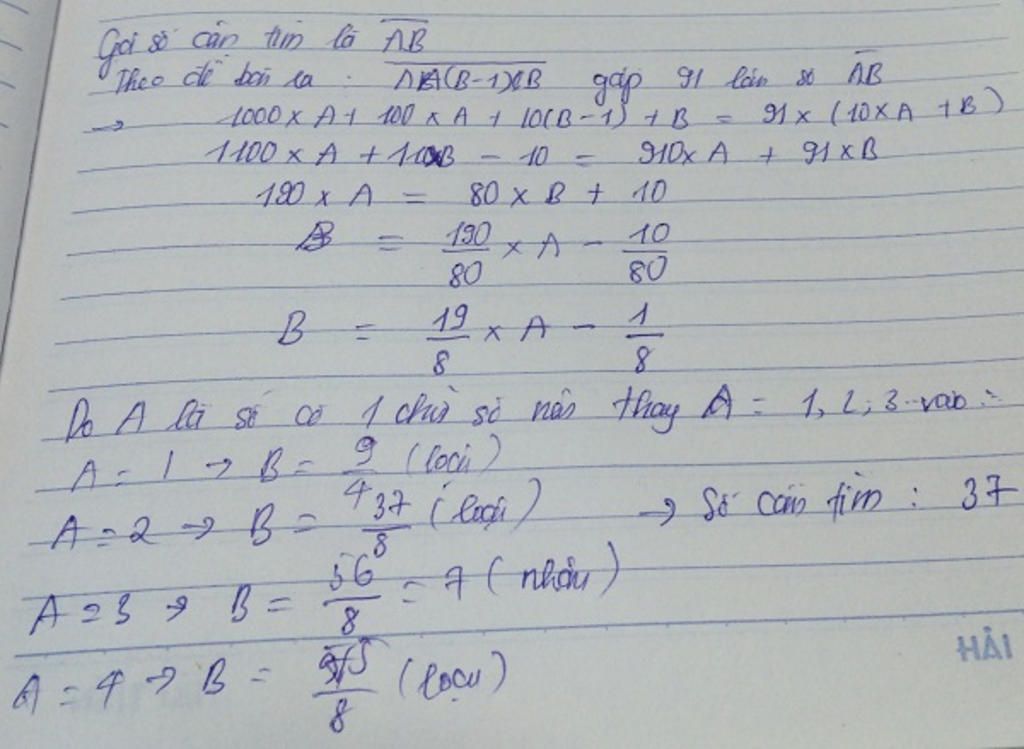 Gọi số cần tìm là AB
Theo đề bài ra : AA(B-1)B gấp 91 lần số AB
→ 1000 x A + 100 x A + 10(B-1) + B = 91 x (10 x A + B)
1100 x A + 11 x B - 10 = 910 x A + 91 x B
190 x A = 80 x B + 10
B = 190/80 x A - 10/80
B = 19/8 x A - 1/8
Do A là số có 1 chữ số nên thay A = 1, 2, 3.. vào :
A = 1 → B = 9/4 (loại)
A = 2 → B = 37/8 (loại) → Số cần tìm : 37
A = 3 → B = 56/8 = 7 (nhận)
A = 4 → B = 75/8 (loại)
HẢI